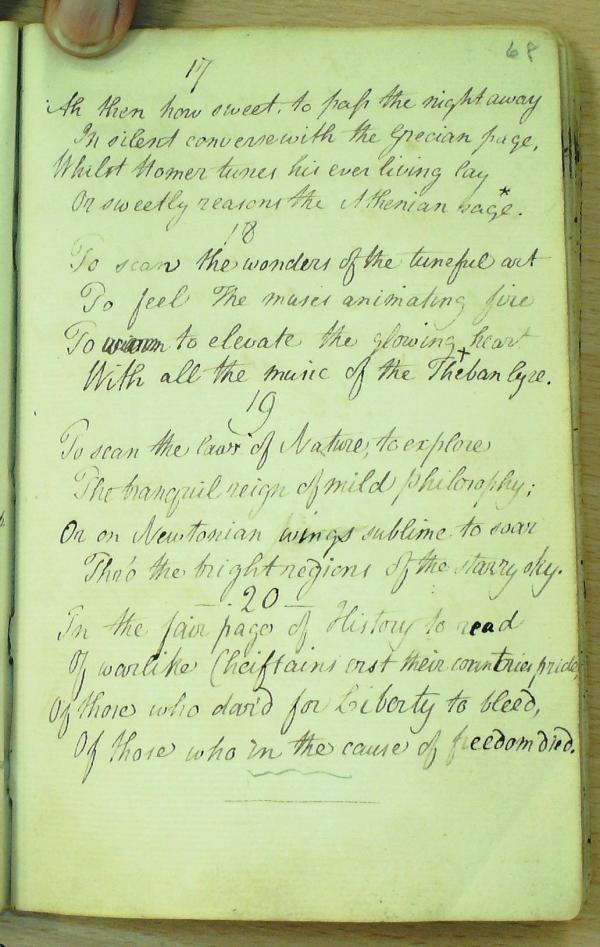 68
17
Ah then how sweet, to pass the night away
In silent converse with the Grecian page,
Whilst Homer tunes his ever living lay
Or sweetly reasons the Athenian sage*.
18
To scan the wonders of the tuneful art
To feel The muses animating fire
To to elevate the glowing heart
With all the music of the +Theban lyre.
19
To scan the laws of Nature, to explore
The tranquil reign of mild philosophy;
Or on Newtonian wings sublime to soar
Thro the bright regions of the starry sky.
20
In the fair page of History to read
Of warlike Cheiftains erst their countries pride,
Of those who dar'd for Liberty to bleed,
Of those who in the cause of freedom died.